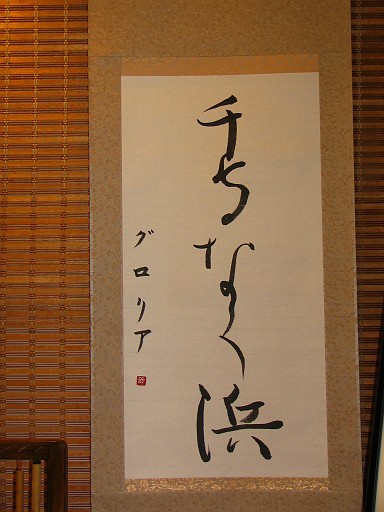 千鳥なく浜
グロリア